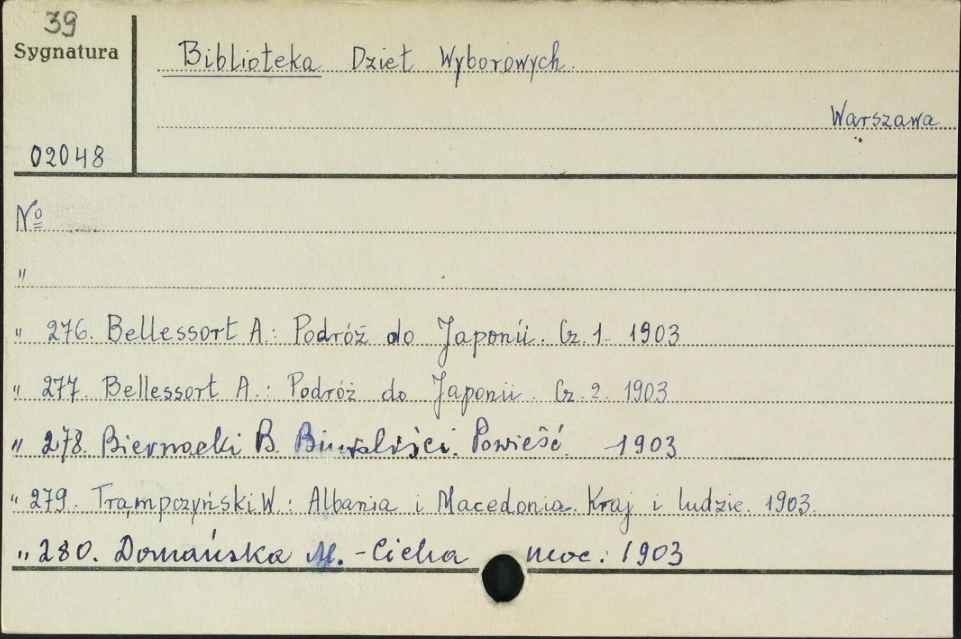 39
Sygnatura
Biblioteka Dzieł Wyborowych.
Warszawa
02048
№
"
" 276. Bellessort A.: Podróż do Japonii. Cz. 1. 1903
" 277. Bellessort A.: Podróż do Japonii. Cz. 2. 1903
" 278. Biernacki B. Powieść. 1903
" 279. Trąmpczyński W.: Albania i Macedonia. Kraj i ludzie. 1903.
" 280. Domańska M. - Cicha moc: 1903